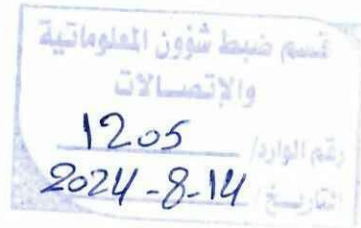 قسم ضبط شؤون المعلوماتية
والإتصالات
رقم الوارد/ 1205
التاريخ/ 2024-8-14